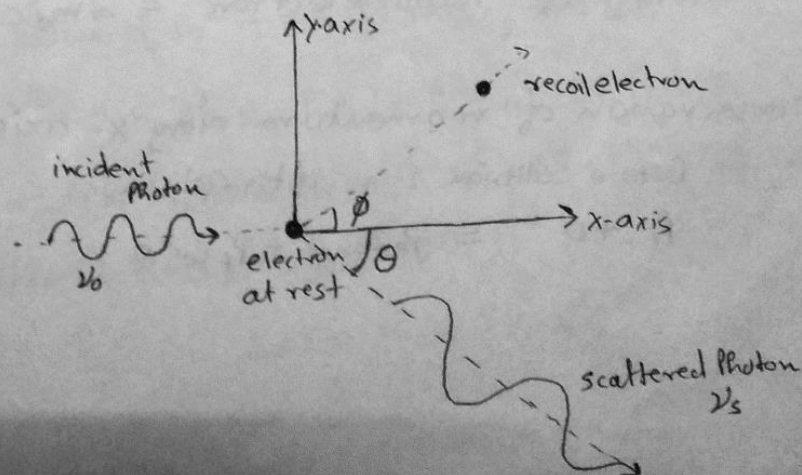 y-axis
recoil electron
incident
Photon
ν₀
φ
x-axis
electron
at rest
θ
scattered Photon
νs